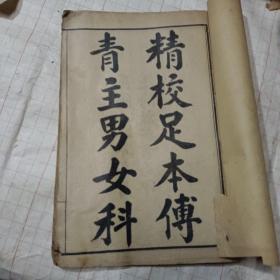 精校足本傅
青主男女科